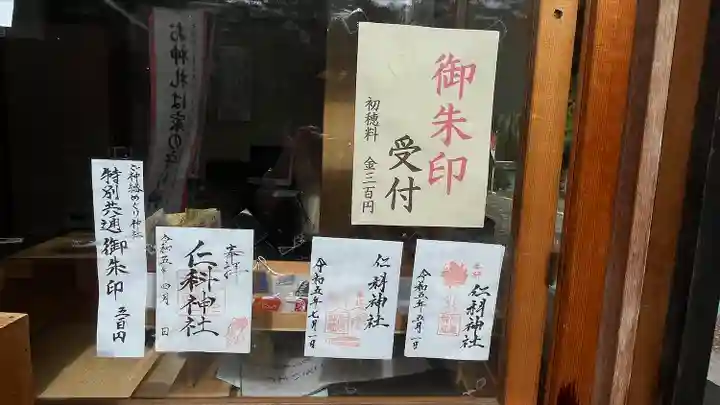 御朱印
受付
初穂料 金三百円
ご神縁めぐり神社
特別共通御朱印 五百円
奉拝
仁科神社
令和五年 四月 日
仁科神社
令和五年七月一日
奉拝
仁科神社
令和五年五月一日
お神札は家の